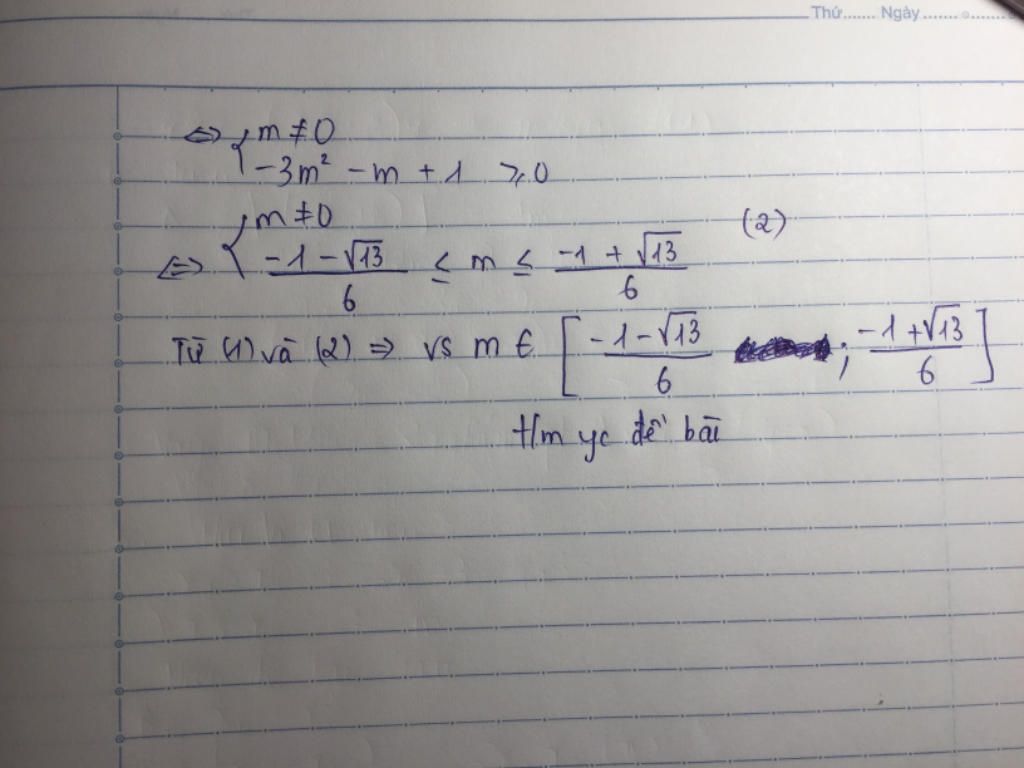 Thứ....... Ngày........
⇔ { m ≠ 0
-3m² - m + 1 ⩾ 0
⇔ { m ≠ 0
(-1 - √13)/6 ≤ m ≤ (-1 + √13)/6 (2)
Từ (1) và (2) ⇒ vs m ∈ [(-1 - √13)/6 ; (-1 + √13)/6]
t/m yc đề bài